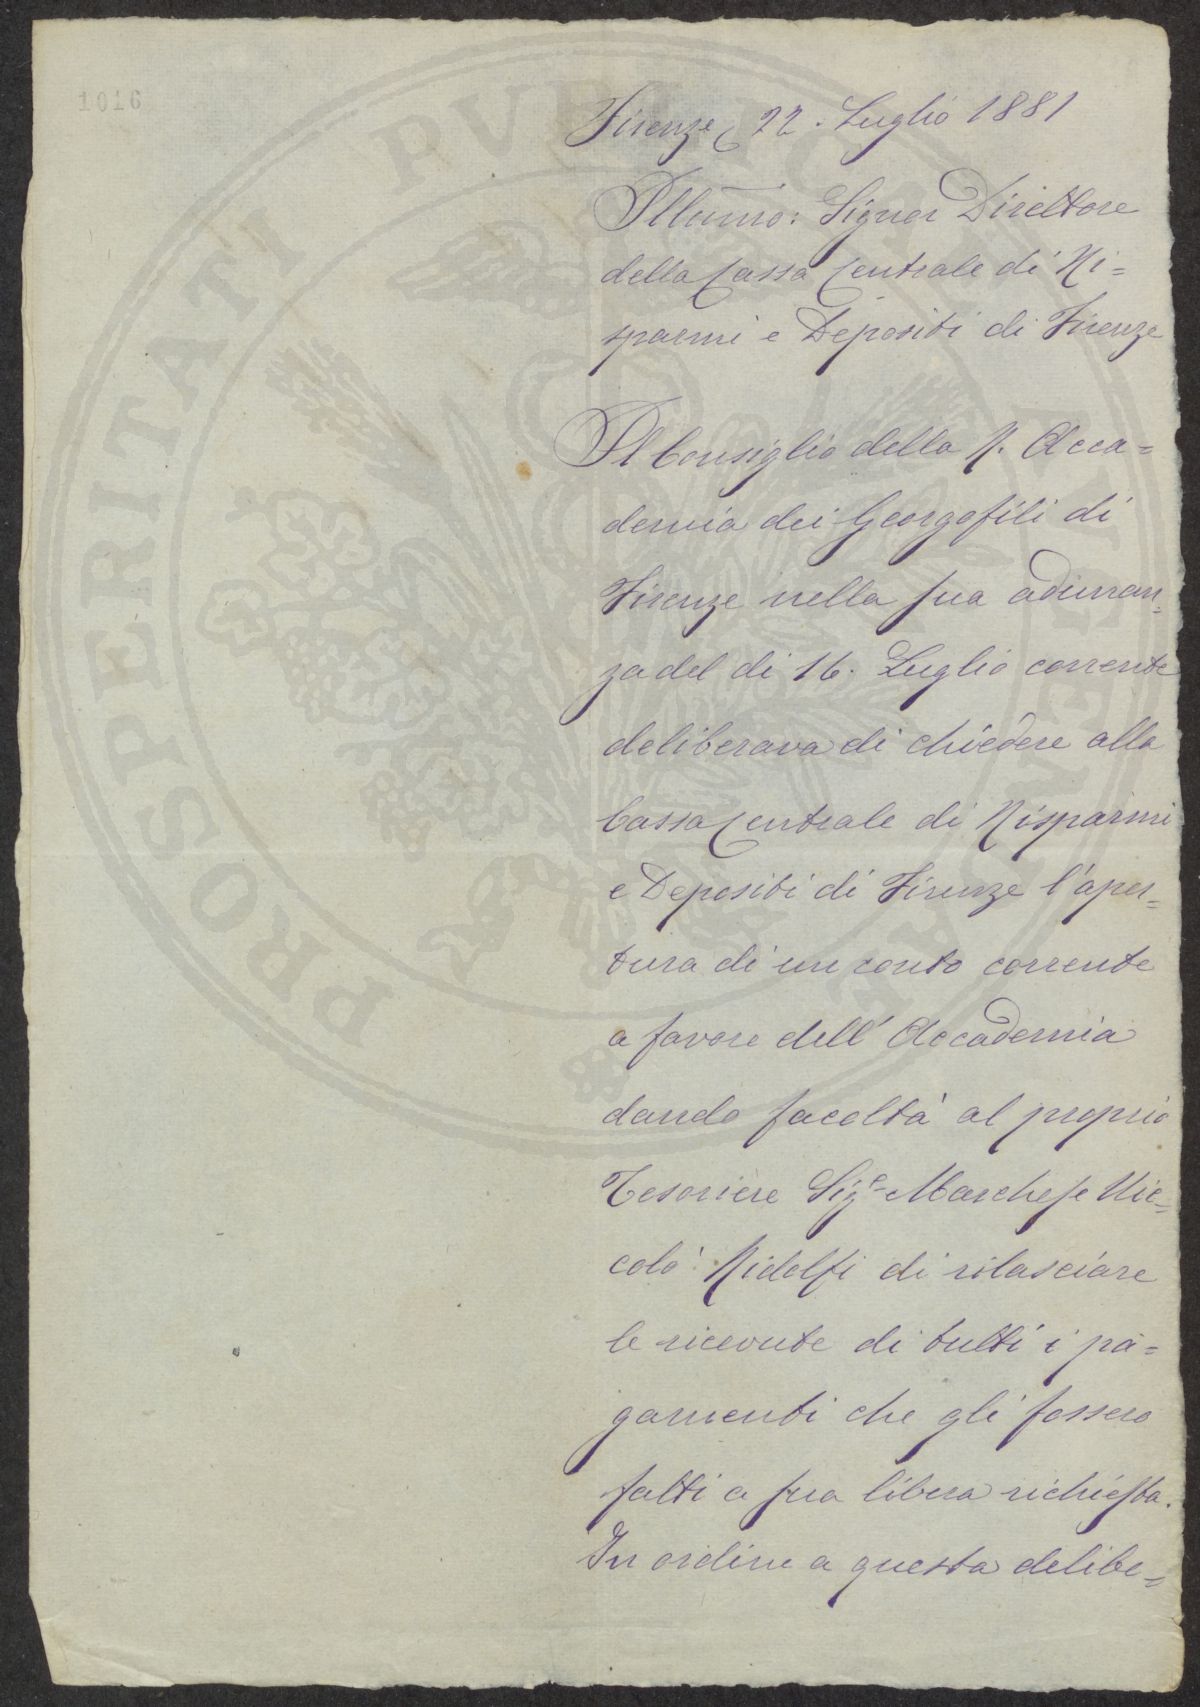 1016
Firenze, 22. Luglio 1881
Illumo: Signor Direttore
della Cassa Centrale di Ri=
sparmi e Depositi di Firenze
Il Consiglio della R. Acca=
demia dei Georgofili di
Firenze nella sua adunan=
za del di 16. Luglio corrente
deliberava di chiedere alla
Cassa Centrale di Risparmi
e Depositi di Firenze l'aper=
tura di un conto corrente
a favore dell'Accademia
dando facoltà al proprio
Tesoriere Sige Marchese Nic=
colò Ridolfi di rilasciare
le ricevute di tutti i pa=
gamenti che gli fossero
fatti a sua libera richiesta.
In ordine a questa delibe=
PROSPERITATI PVBLICAE AVGENDAE